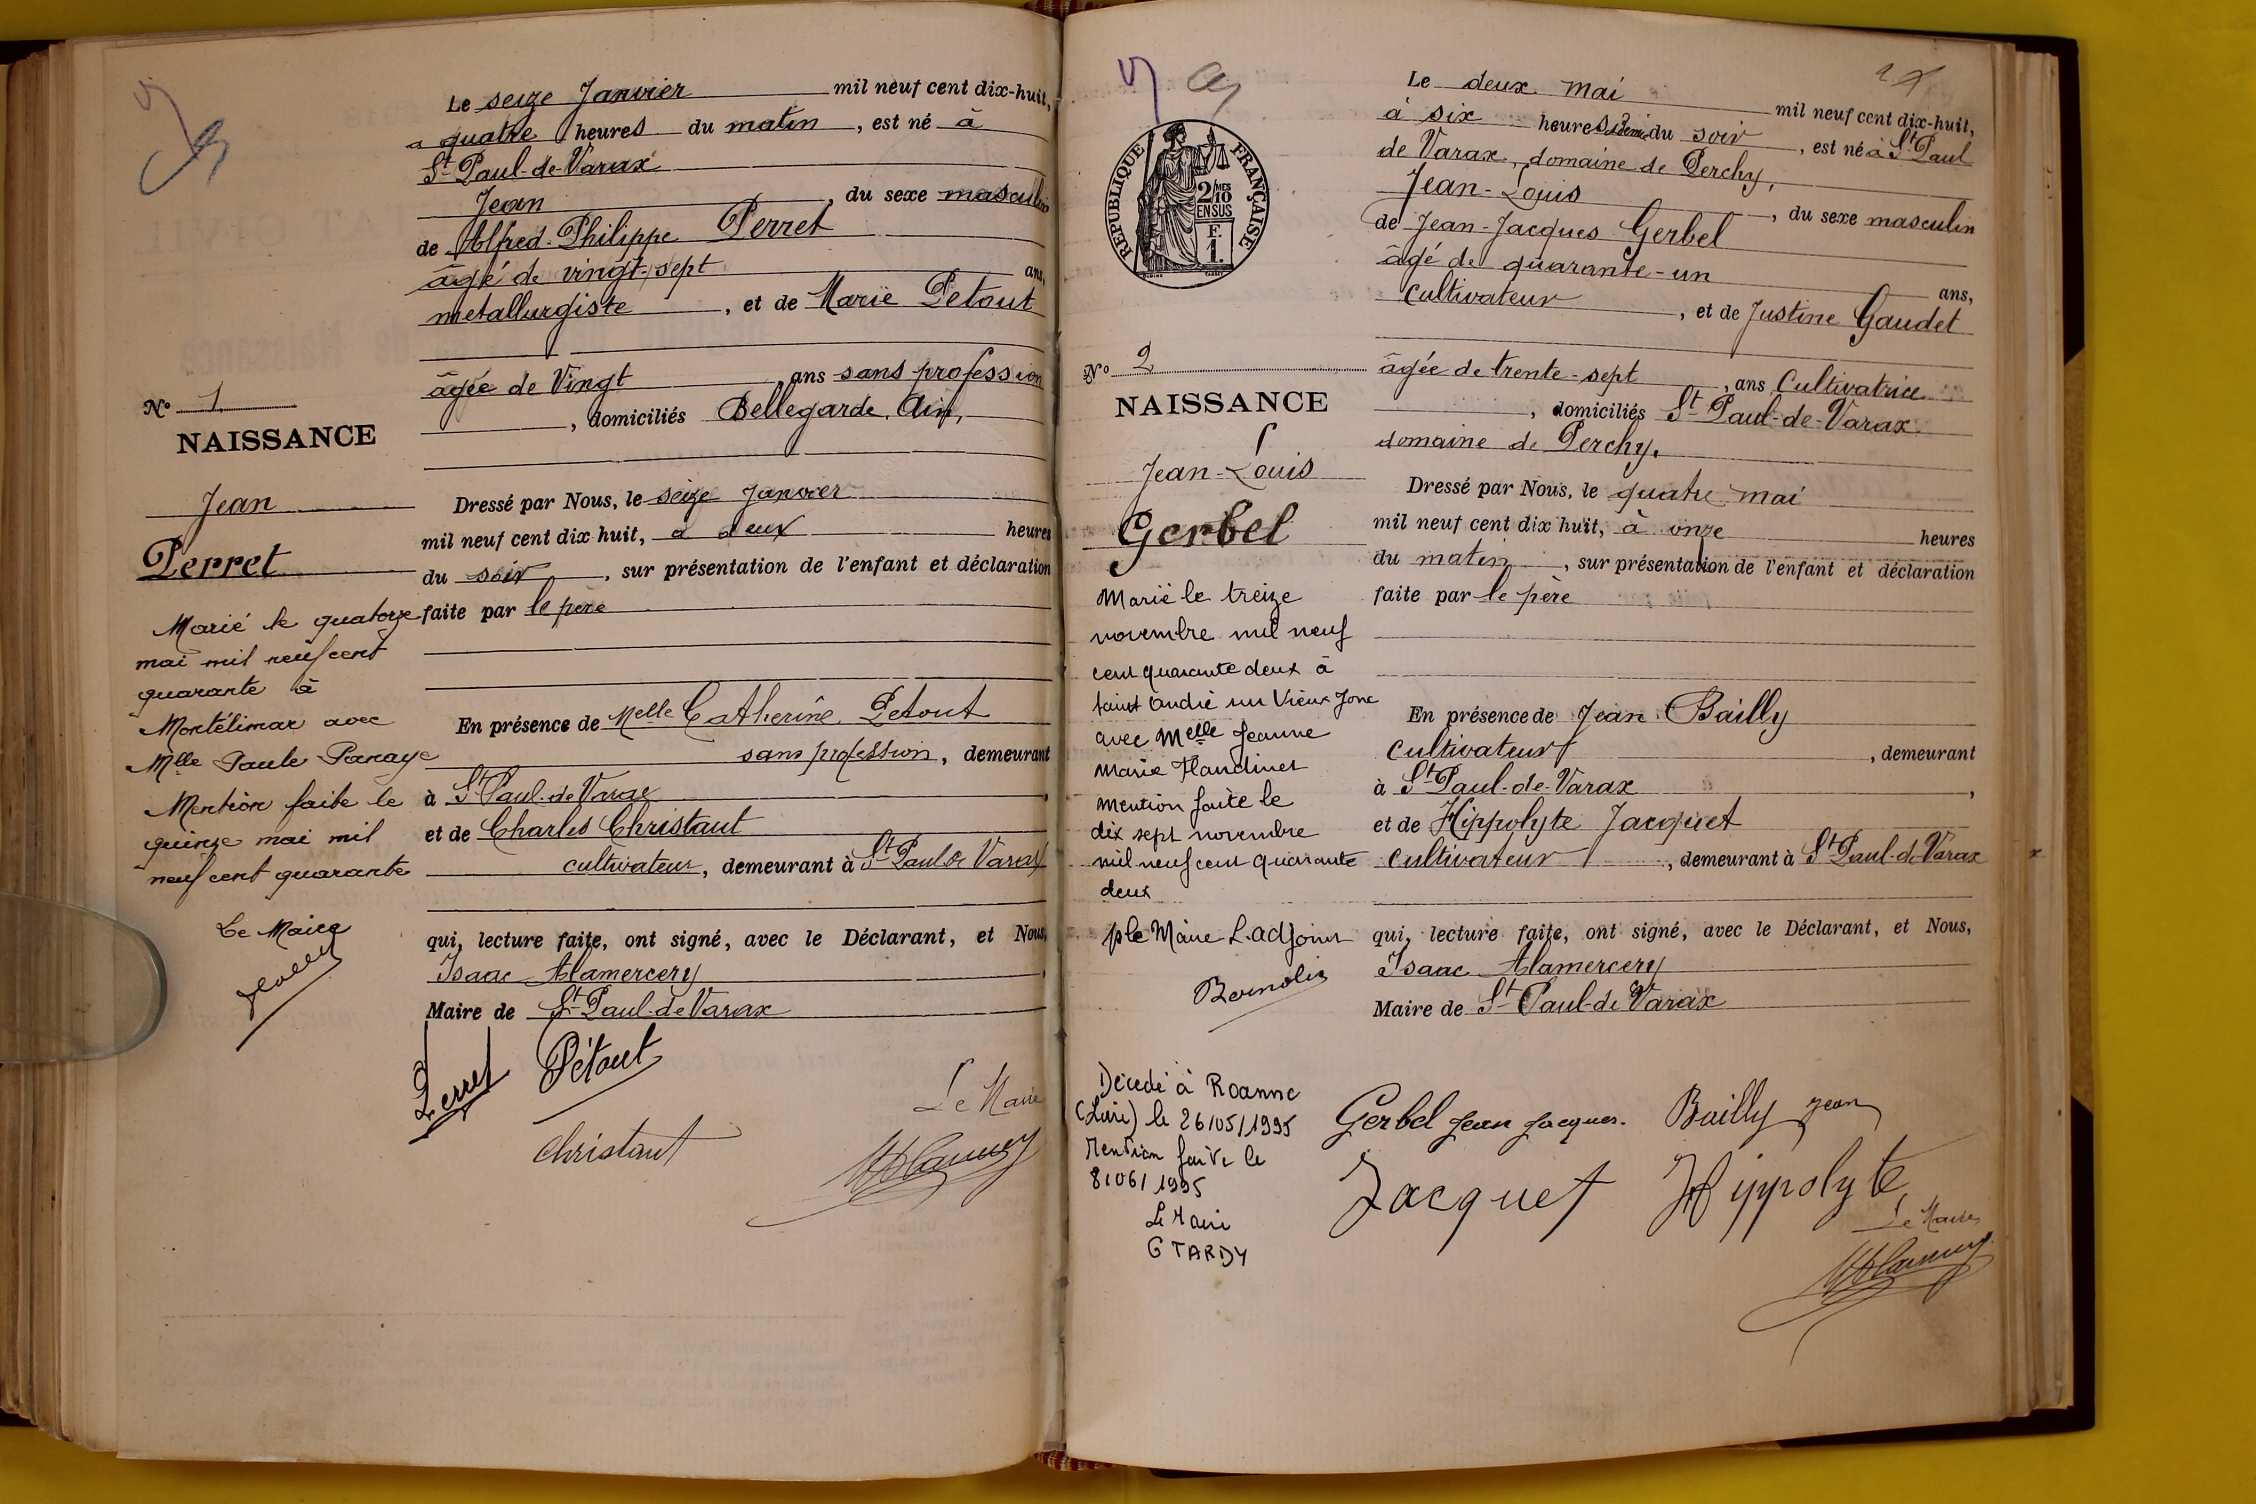 Le seize Janvier mil neuf cent dix-huit,
a quatre heures du matin, est né à
St Paul-de-Varax
Jean, du sexe masculin
de Alfred-Philippe Perret
âgé de vingt-sept ans,
metallurgiste, et de Marie Petout
âgée de Vingt ans sans profession
, domiciliés Bellegarde, Ain,
Dressé par Nous, le seize Janvier
mil neuf cent dix huit, a deux heures
du soir, sur présentation de l'enfant et déclaration
faite par le père
En présence de Melle Catherine Petout
sans profession, demeurant
à St Paul-de-Varax,
et de Charles Christaut
cultivateur, demeurant à St Paul de Varax
qui, lecture faite, ont signé, avec le Déclarant, et Nous,
Isaac Alamercery
Maire de St Paul-de-Varax
Perret Pétout
Christaut
Le Maire
No 1
NAISSANCE
Jean
Perret
Marié le quatorze
mai mil neuf cent
quarante à
Montélimar avec
Mlle Paule Panaye
Mention faite le
quinze mai mil
neuf cent quarante
Le Maire
RÉPUBLIQUE FRANÇAISE
2/10MES
EN SUS
F.
1.
No 2
NAISSANCE
Jean-Louis
Gerbel
Marié le treize
novembre mil neuf
cent quarante deux à
saint andré sur Vieux Jonc
avec Melle Jeanne
Marie Flandinet
Mention faite le
dix sept novembre
mil neuf cent quarante
deux
p le Maire L'adjoint
Décedé à Roanne
(Loire) le 26/05/1995
Mention faite le
8/06/1995
Le Maire
G TARDY
Le deux mai mil neuf cent dix-huit,
à six heures &demie du soir, est né à St Paul
de Varax, domaine de Perchy,
Jean-Louis, du sexe masculin
de Jean-Jacques Gerbel
âgé de quarante-un ans,
cultivateur, et de Justine Gaudet
âgée de trente-sept, ans Cultivatrice
, domiciliés St Paul-de-Varax
domaine de Perchy.
Dressé par Nous, le quatre mai
mil neuf cent dix huit, à onze heures
du matin, sur présentation de l'enfant et déclaration
faite par le père
En présence de Jean Bailly
cultivateur, demeurant
à St Paul-de-Varax,
et de Hippolyte Jacquet
cultivateur, demeurant à St Paul-de-Varax
qui, lecture faite, ont signé, avec le Déclarant, et Nous,
Isaac Alamercery
Maire de St Paul-de Varax
Gerbel Jean Jacques. Bailly Jean
Jacquet Hippolyte
Le Maire